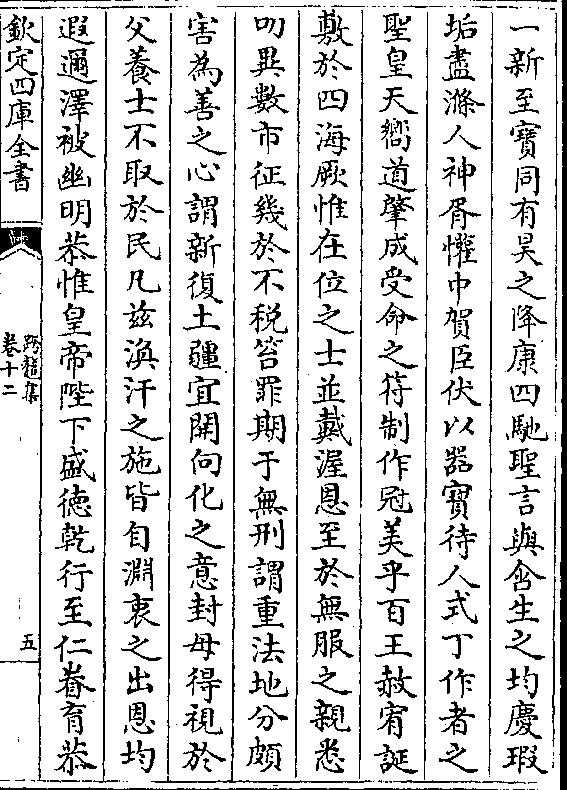 一新至寶同有昊之降康四馳聖言與含生之均慶瑕
垢盡滌人神胥懽中賀臣伏以器寶待人式丁作者之
聖皇天嚮道肇成受命之符制作冠美乎百王赦宥誕
敷於四海厥惟在位之士並戴渥恩至於無服之親悉
叨異數市征幾於不稅笞罪期于無刑謂重法地分頗
害為善之心謂新復土疆宜開向化之意封毋得視於
父養士不取於民凡兹渙汗之施皆自淵衷之出恩均
遐邇澤被幽明恭惟皇帝陛下盛徳乾行至仁眷育恭
欽定四庫全書
跨鼇集
卷十二
五